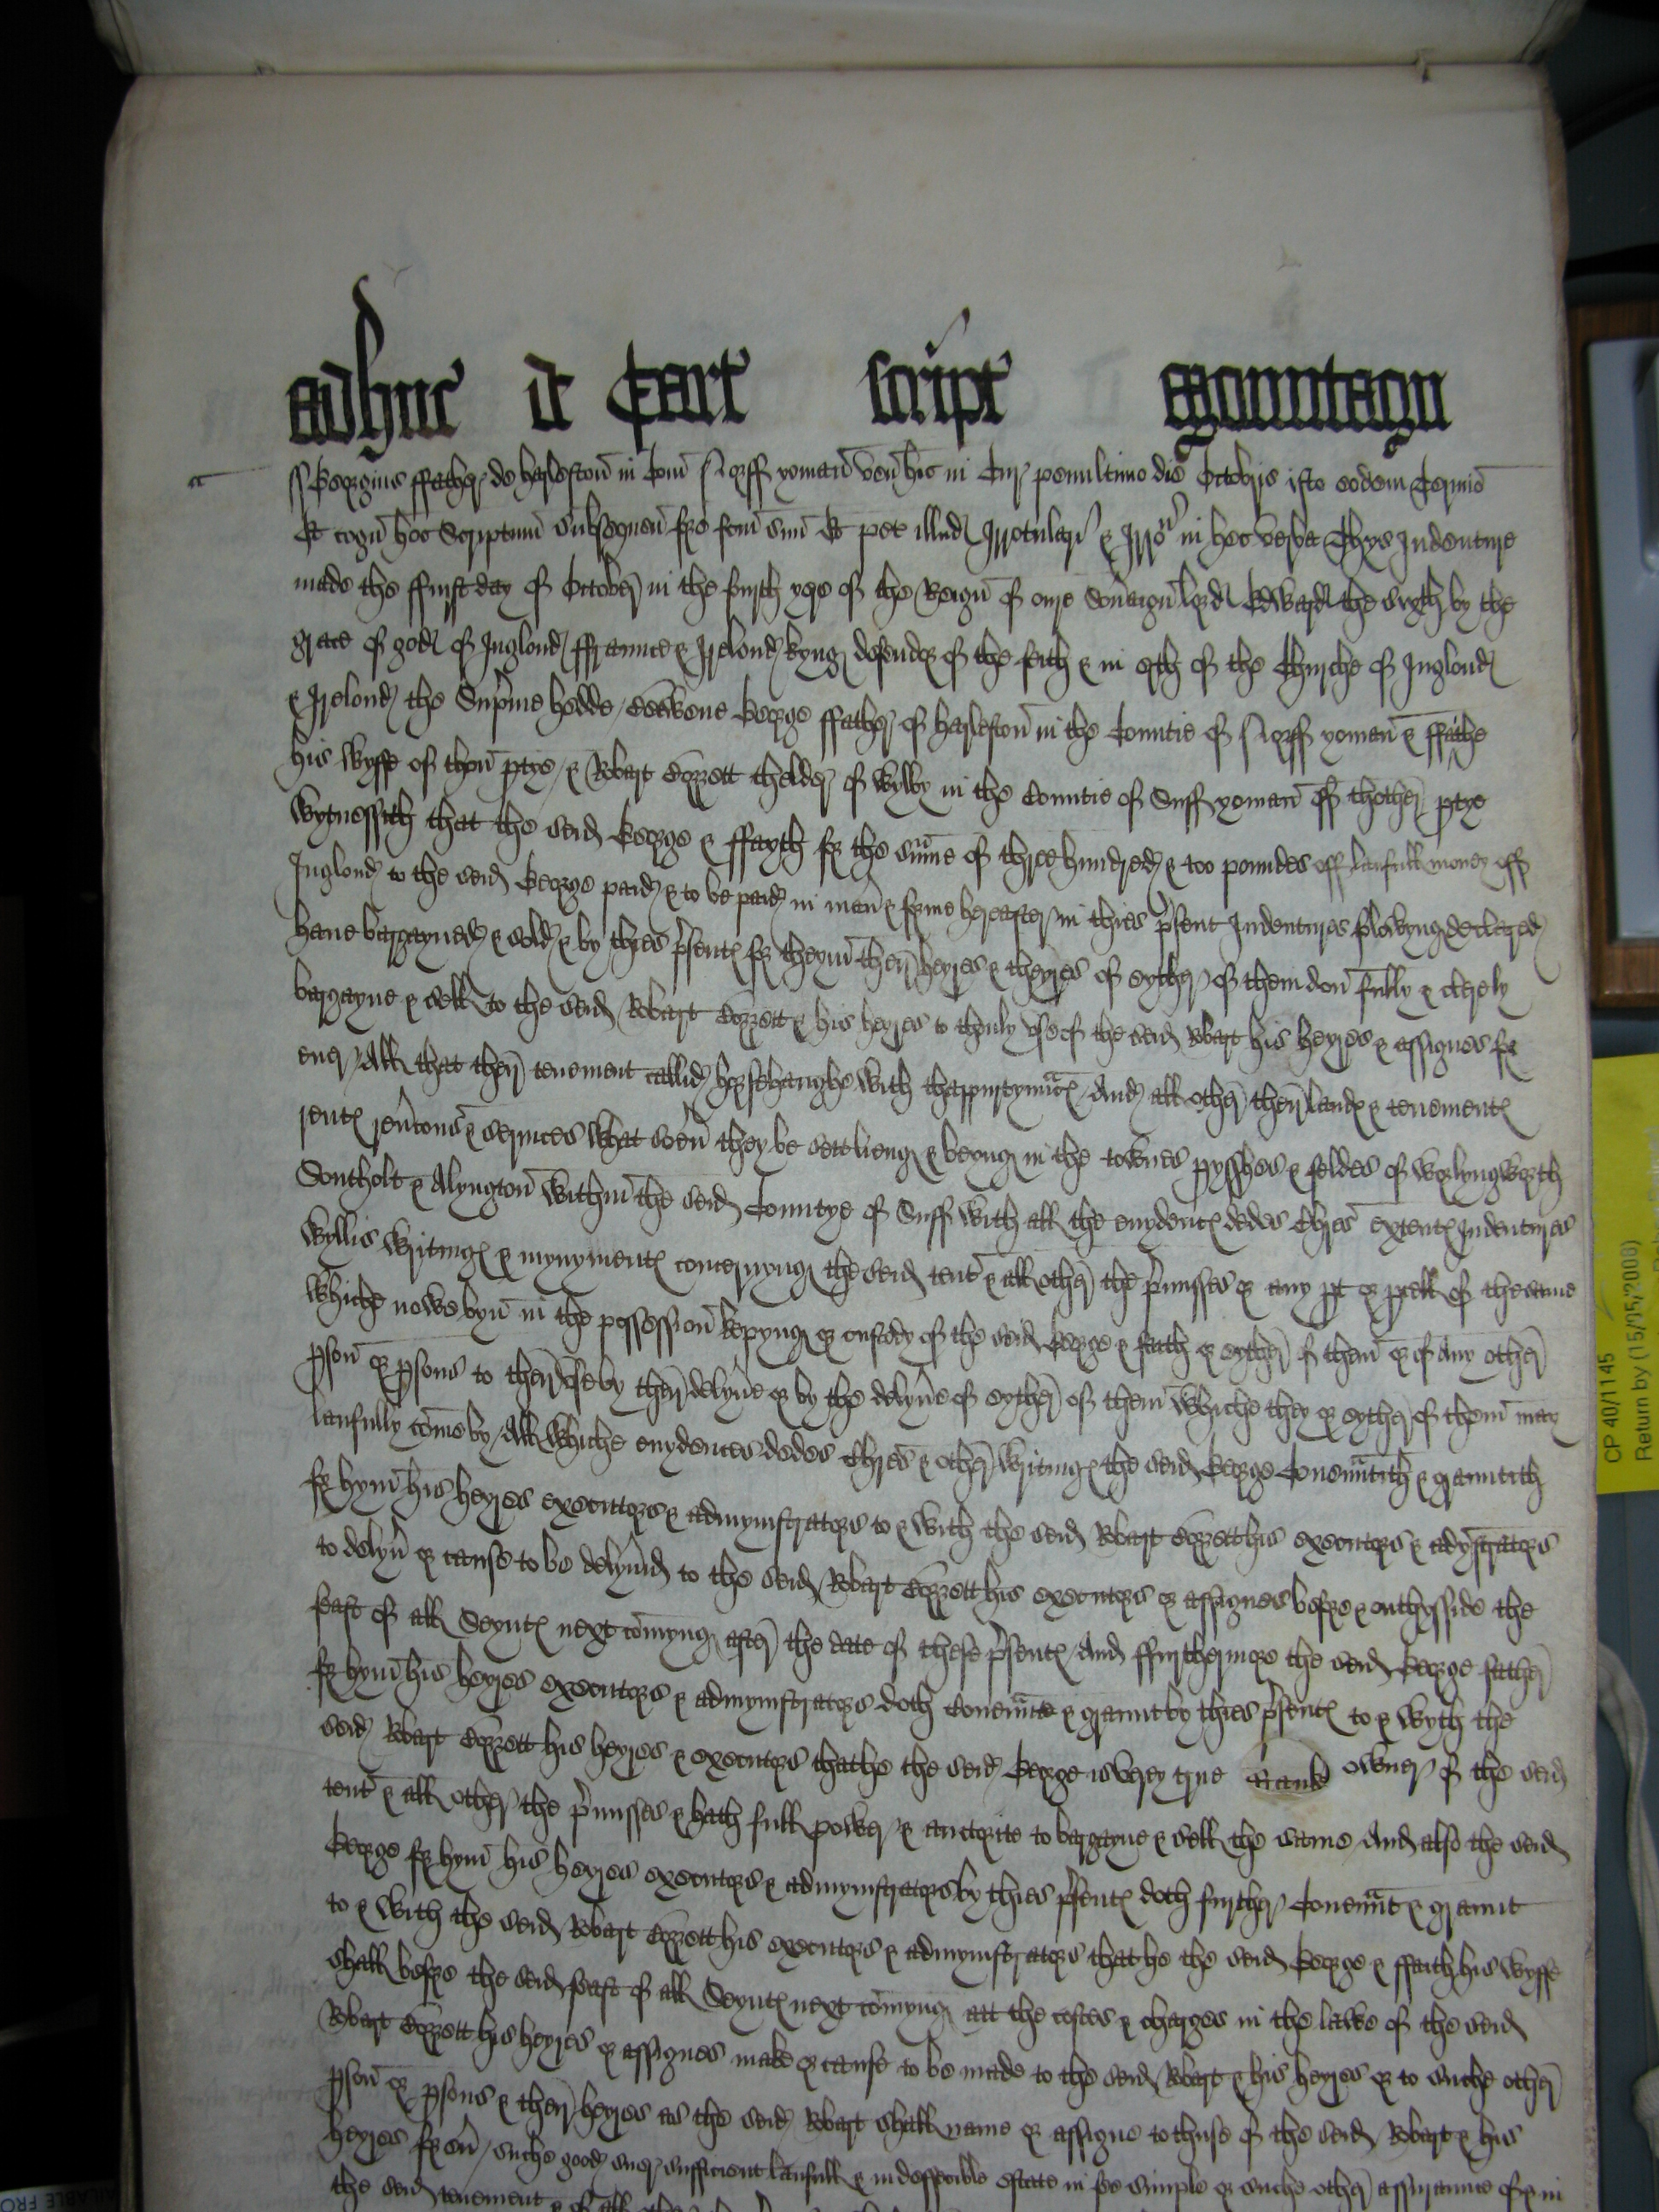 adhuc de Cart script Mountagu
Georgius ffather de harleston in Com Norff yoman ven hic in Cur penultimo die Octobris isto eodem Termino
Et cogn hoc Scriptum subsequen fore fcm suum Et pet illud Irrotulari & Irro in hec verba Thys Indenture
made the ffurst day of October in the fourth yere of the Reign of oure Soveraign lord Edward the sixth by the
grace of god of Inglond ffraunce & Irelond kyng defendor of the feith & in erth of the Churche of Inglond
& Irelond the Supreme hedde / Betwene George ffather of harleston in the Countie of Norff yoman & ffaithe
his wyffe of thon ptye / & Robart thelder of Wylby in the Countie of Suff yoman off thother ptye
wytnessith that the seid George & ffayth for the summe of three hundred & too poundes off laufull money off
Inglond to the seid George paid & to be paid in maner & forme hereafter in thies psent Indentures folowyng declared
have bargayned & sold & by thies psentes for theym their heyres & theyres of eyther of them don fully & clerely
bargayne & sell to the seid Robart & his heyres to thonly use of the seid Robart his heyres & assignes for
ever / All that their tenement callid with thappurtynnces And all other their landes & tenementes
rentes revercons & services what soever they be sett lieng & beyng in the townes & feldes of Worlyngworth
Southolt & Alyngton within the seid Countye of Suff with all the evydentes dedes Chres extentes Indentures
wyllis writinges & mynymentes concernyng the seid tent & all other the pmisses or any pt or pcell of thesame
whiche nowe byn in the possession kepyng or custody of the seid George & faith or eyther of them or of any other
pson or psons to their use by their delyvre or by the delyvre of eyther of them whiche they or eyther of them may
laufully come by / All whiche evydences dedes Chres & other writinges the seid George Covennتith & grauntith
for hym his heyres executors & admynistrators to & with the seid Robart his executors & admystrators
to delyver or cause to be delyverid to the seid Robart his executors or assignes before & on thysside the
feast of all Seyntes next comyng after the date of these psentes / And ffurthermore the seid George father
for hym his heyres executors & admynistrators doth Covennte & graunt by thies psentes to & wyth the
seid Robart his heyres & executors that he the seid George is verey true owner of the seid
tent & all other the pmisses & hath full power & auctorite to bargayne & sell the same And also the seid
George for hym his heyres executors & admynistrators by thies psentes doth further Covennt & graunt
to & with the seid Robart his executors & admynistrators that he the seid George & ffaith his wyffe
shall before the seid feast of all Seyntes next comyng att the costes & charges in the lawe of the seid
Robart his heyres or assignes make or cause to be made to the seid Robart & his heyres or to suche other
pson or psons & their heyres as the seid Robart shall name or assigne to thuse of the seid Robart & his
heyres for ever / suche good suer sufficient laufull & indeffecible estate in fee simple or suche other assuraunce of & in
the seid tenement & of all
CP 40/1145
Return by (15/05/2008)